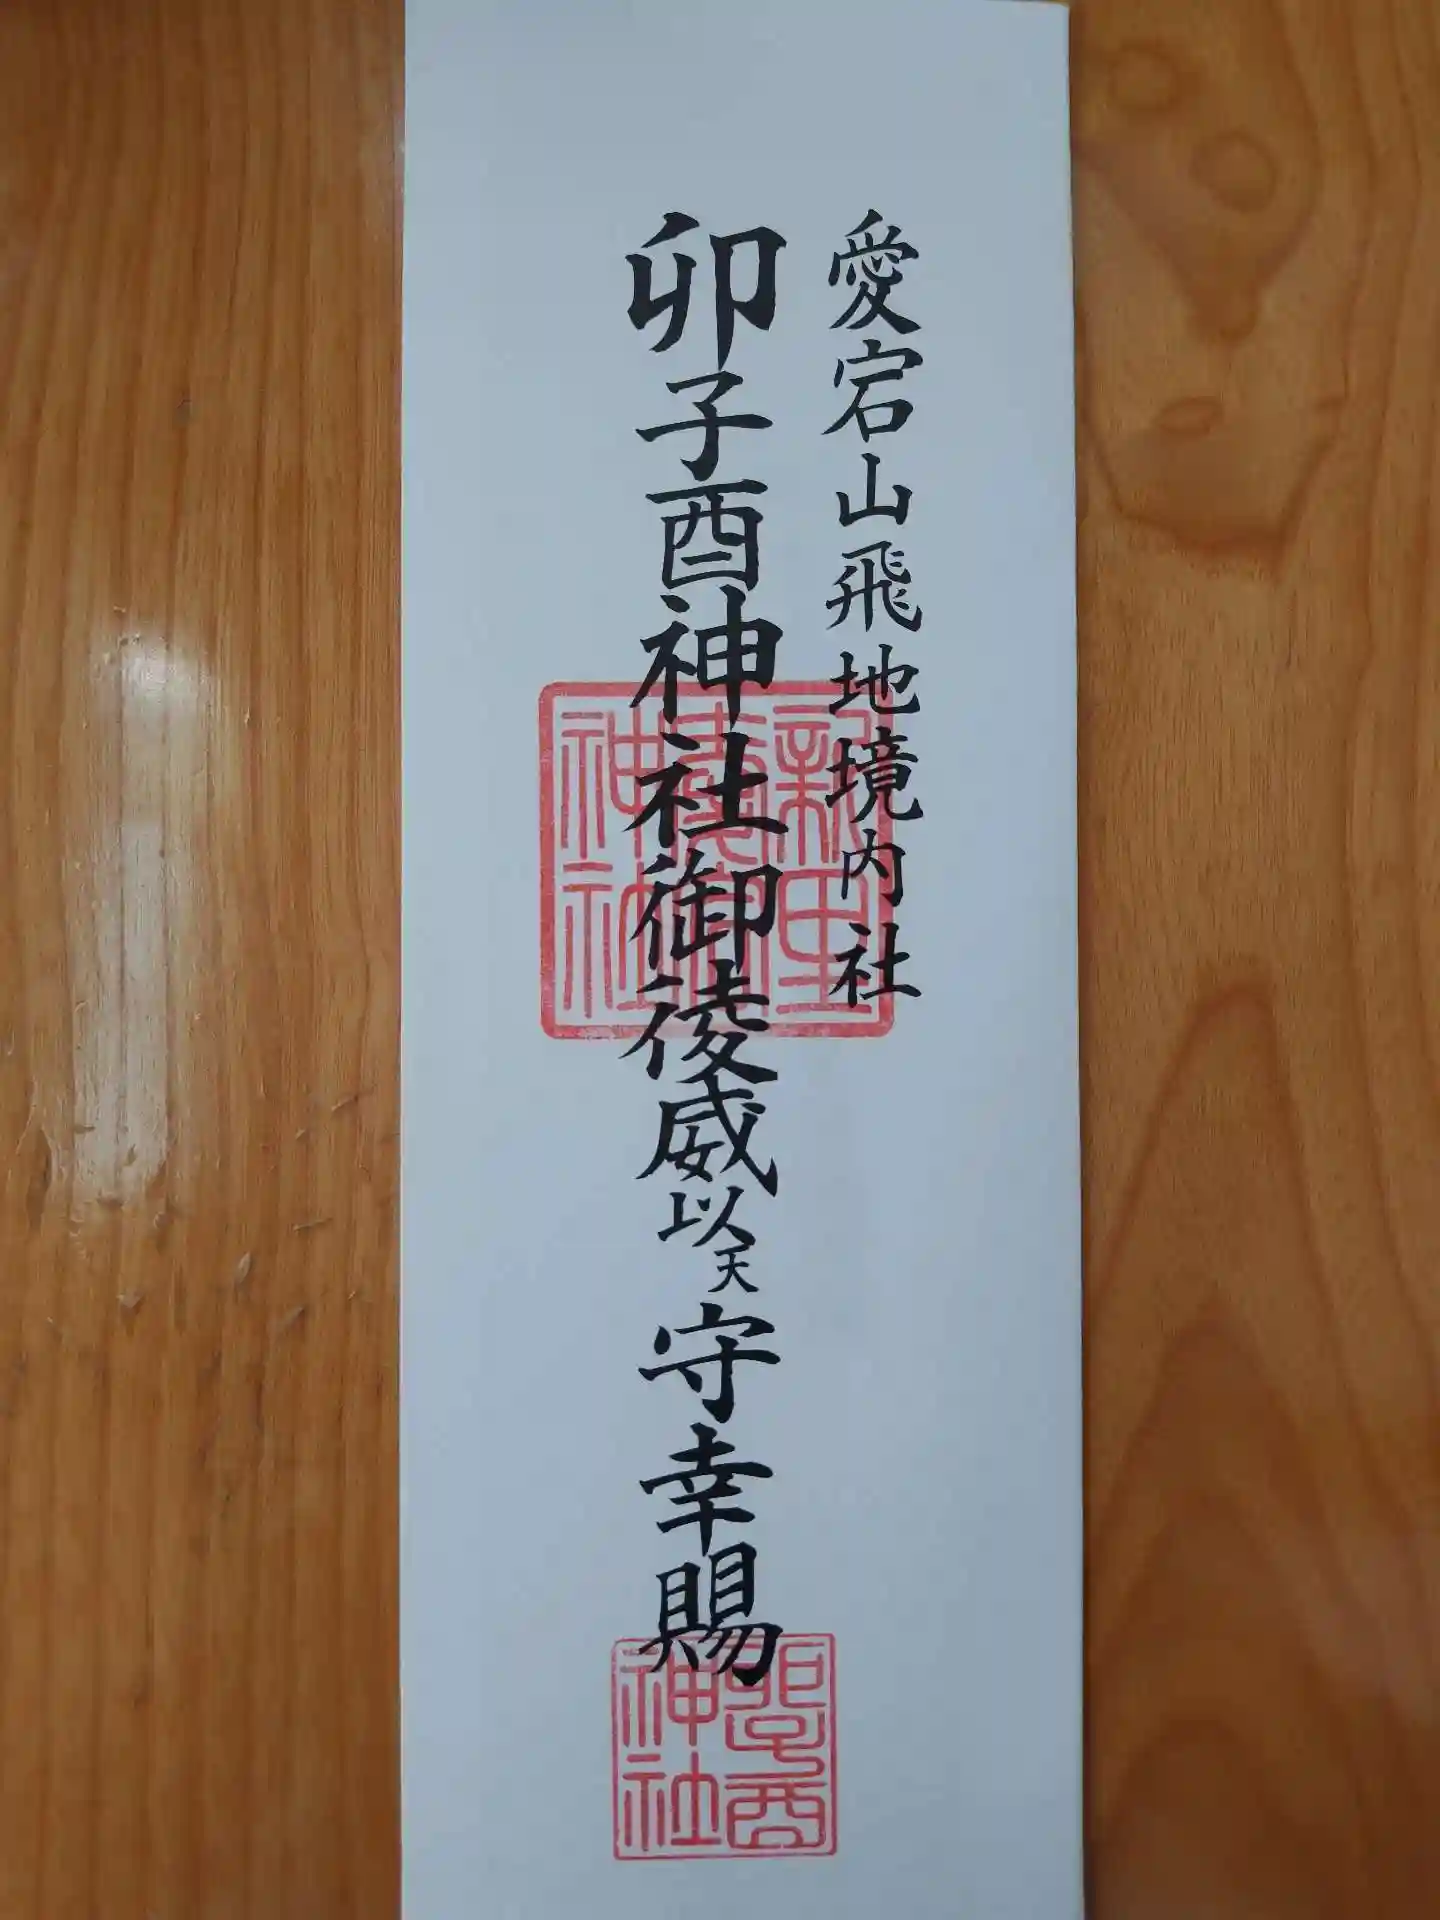 愛宕山飛地境内社
卯子酉神社御稜威以天守幸賜
新里
愛宕
神社
卯子酉
神社